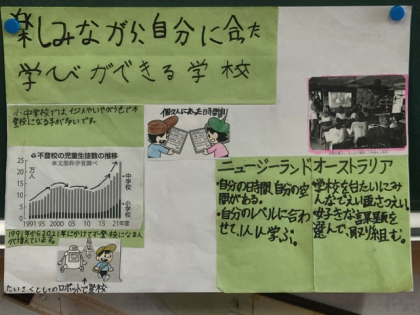 楽しみながら自分に合った
学びができる学校
小中学校では、イジメやいやがらせで不
登校になる子が多いです。
個々人にあった時間割
不登校の児童生徒数の推移
※文部科学省調べ
25
万人
20
15
10
5
0
1991 95 2000 05 10 15 21年度
中学校
小学校
1991年から2021年にかけて不登校になる人
が増えている。
たいさくとしてのロボットで学校
ニュージーランド
・自分の時間、自分の空
間がある。
・自分のレベルに合わ
せて、1人1人学ぶ。
オーストラリア
・学校を
・好きな課題を
選んで、取り組む。